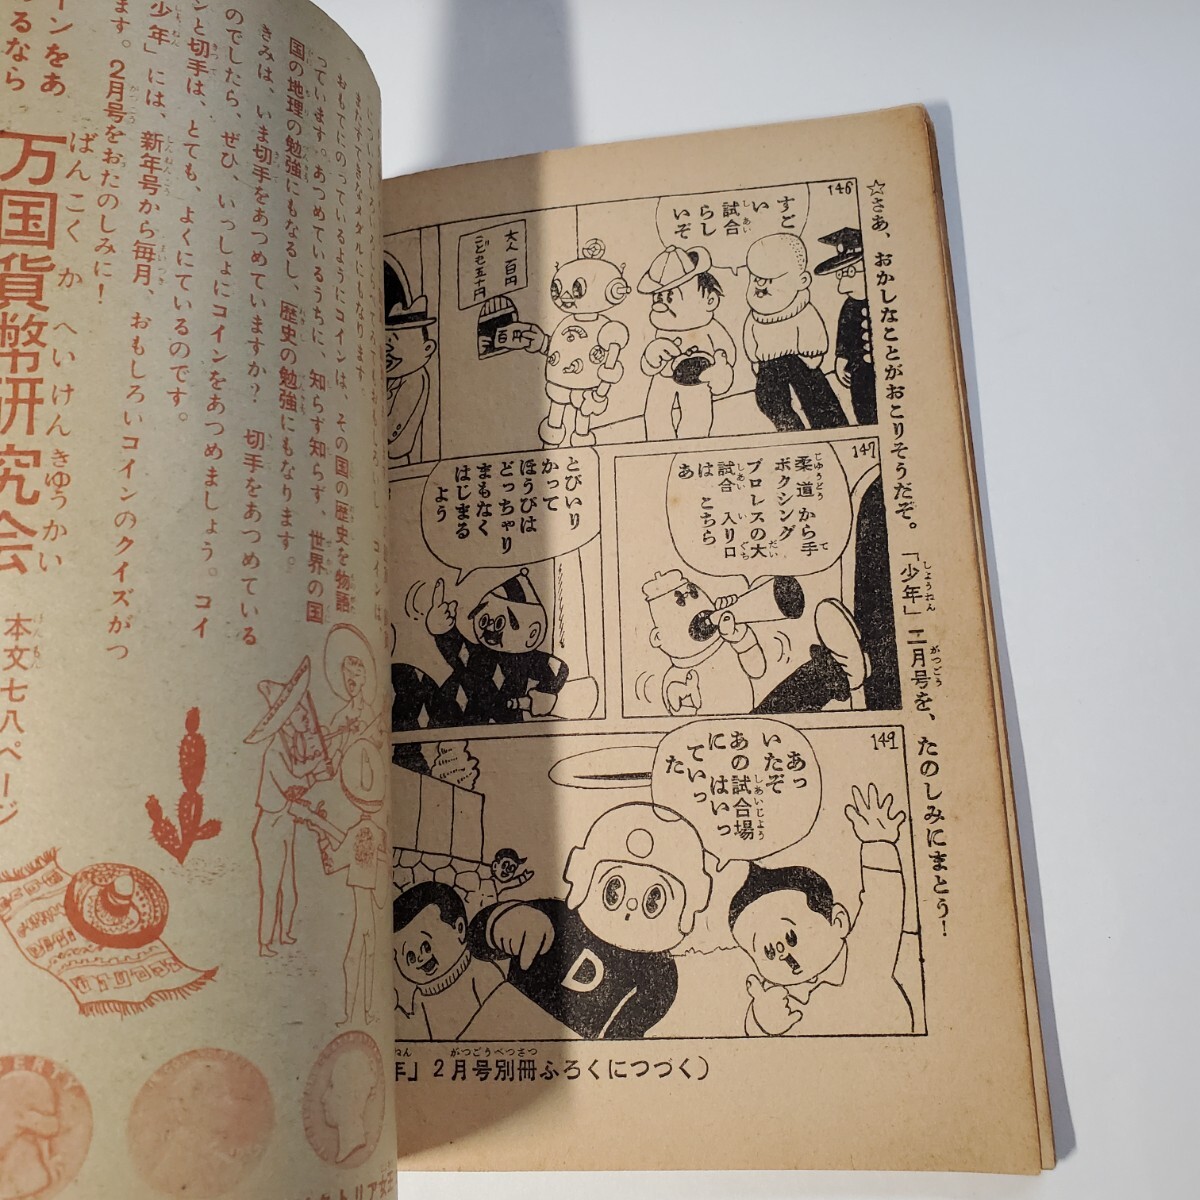 ☆さあ、おかしなことがおこりそうだぞ。「少年」二月号を、たのしみにまとう!
146
すご
い
試合
らし
いぞ
大人 百円
こども五十円
百円
147
柔道から手
ボクシング
プロレスの大
試合 入り口
は こちら
あ
とびいり
かって
ほうびは
どっちゃり
まもなく
はじまる
よう
149
あっ
いたぞ
あの試合場
に はいっ
ていっ
た
D
年」2月号別冊ふろくにつづく)
またすてきなメタルにもなります。
おもてにのっているようにコインは、その国の歴史を物語
っています。あつめているうちに、知らず知らず、世界の国
国の地理の勉強にもなるし、歴史の勉強にもなります。
きみは、いま切手をあつめていますか? 切手をあつめている
のでしたら、ぜひ、いっしょにコインをあつめましょう。コイ
ンと切手は、とても、よくにているのです。
少年」には、新年号から毎月、おもしろいコインのクイズがつ
ます。2月号をおたのしみに!
インをあ
るなら
万国貨幣研究会
ばんこくかへいけんきゅうかい
本文七八ページ